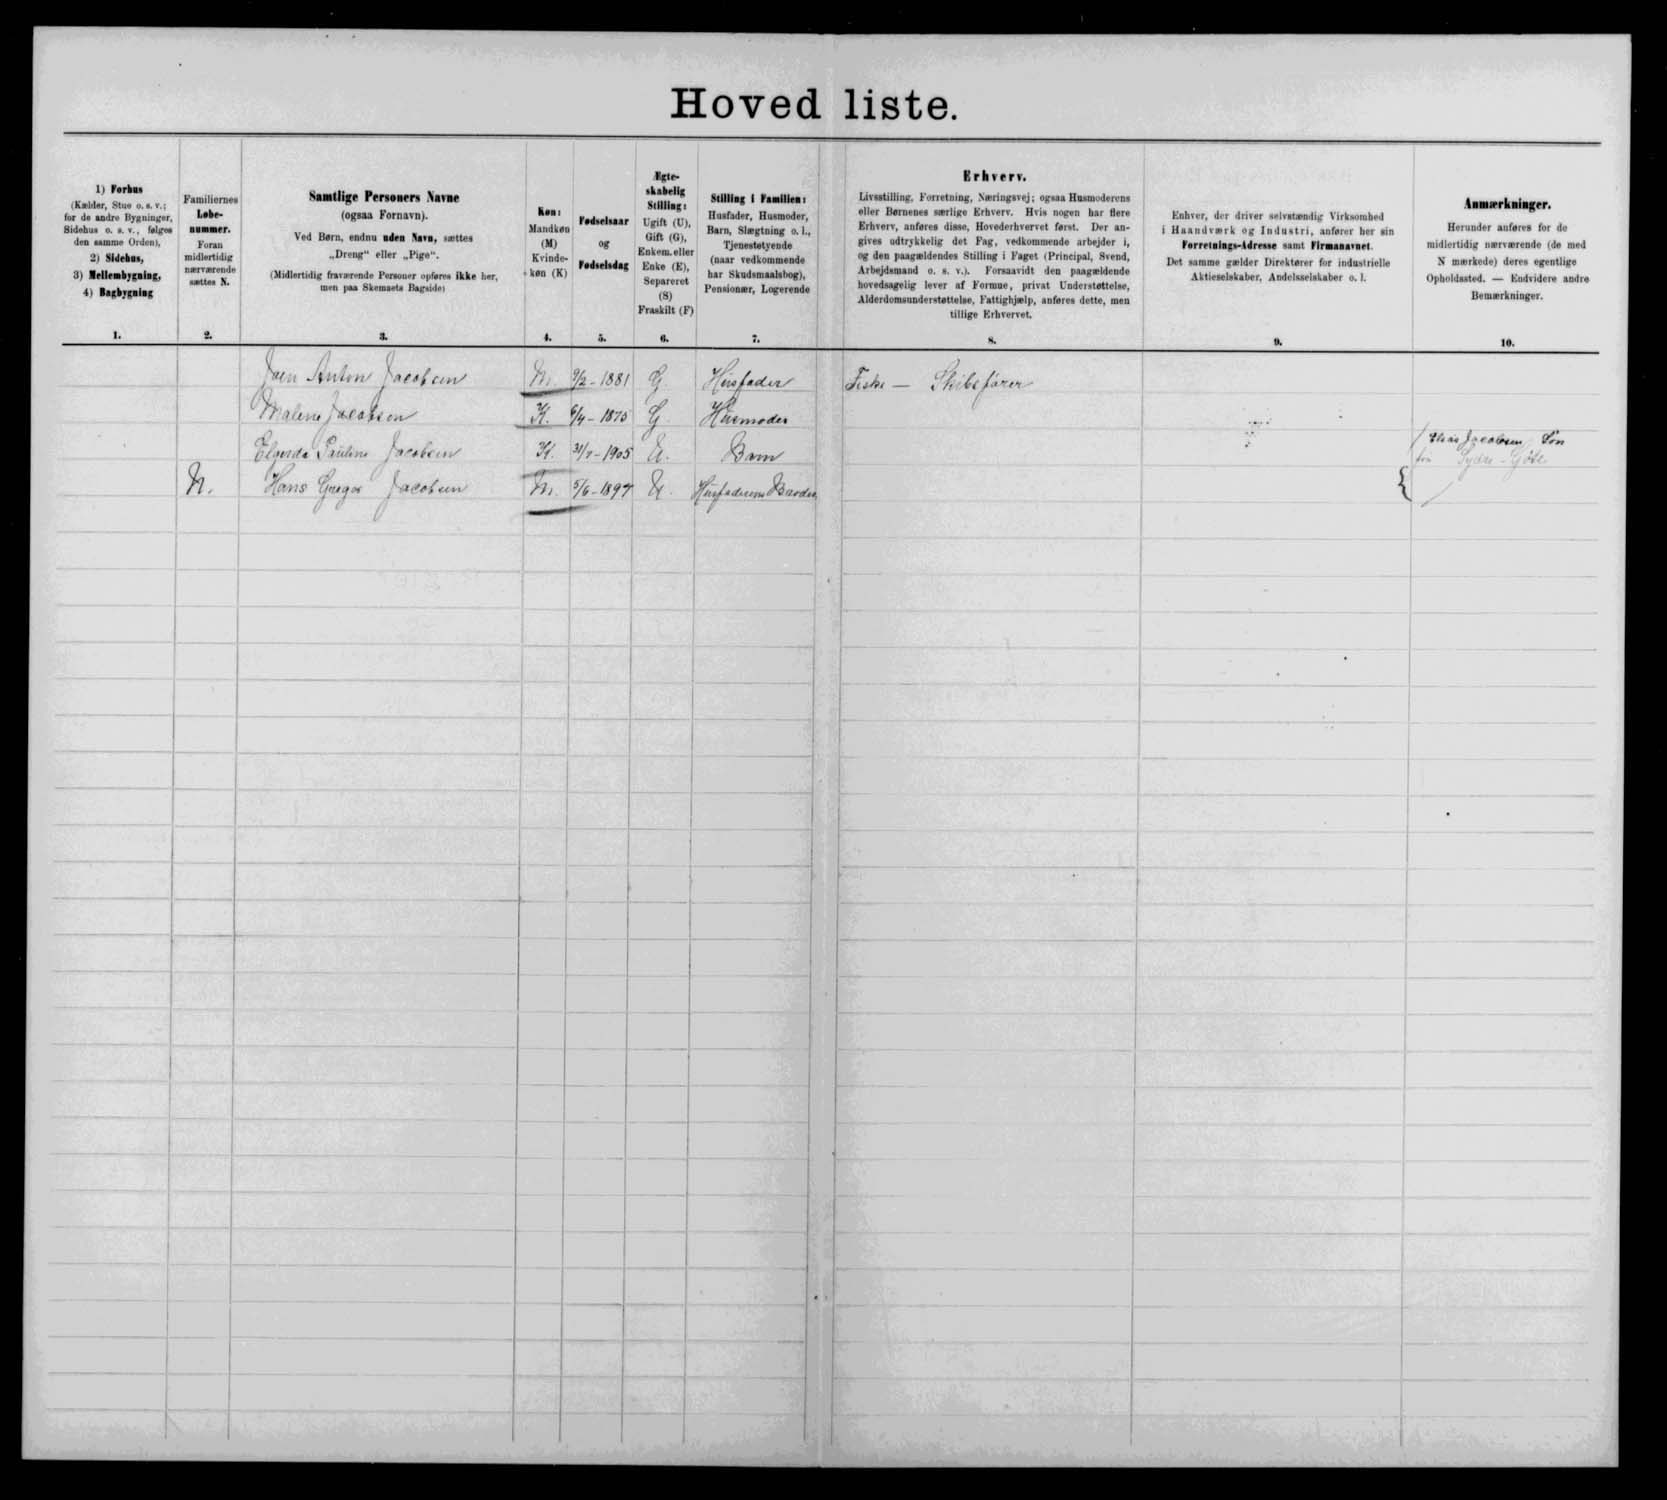 Hovedliste.
1) Forhus
(Kælder, Stue o. s. v.;
for de andre Bygninger,
Sidehus o. s. v., følges
den samme Orden),
2) Sidehus,
3) Mellembygning,
4) Bagbygning
1.
Familiernes
Løbe-
nummer.
Foran
midlertidig
nærværende
sættes N.
2.
Samtlige Personers Navne
(ogsaa Fornavn).
Ved Børn, endnu uden Navn, sættes
„Dreng“ eller „Pige“.
(Midlertidig fraværende Personer opføres ikke her,
men paa Skemaets Bagside)
3.
Køn:
Mandkøn
(M)
Kvinde-
køn (K)
4.
Fødselsaar
og
Fødselsdag
5.
Ægte-
skabelig
Stilling:
Ugift (U),
Gift (G),
Enkem. eller
Enke (E),
Separeret
(S)
Fraskilt (F)
6.
Stilling i Familien:
Husfader, Husmoder,
Barn, Slægtning o. l.,
Tjenestetyende
(naar vedkommende
har Skudsmaalsbog),
Pensionær, Logerende
7.
Erhverv.
Livsstilling, Forretning, Næringsvej; ogsaa Husmoderens
eller Børnenes særlige Erhverv. Hvis nogen har flere
Erhverv, anføres disse, Hovederhvervet først. Der an-
gives udtrykkelig det Fag, vedkommende arbejder i,
og den paagældendes Stilling i Faget (Principal, Svend,
Arbejdsmand o. s. v.). Forsaavidt den paagældende
hovedsagelig lever af Formue, privat Understøttelse,
Alderdomsunderstøttelse, Fattighjælp, anføres dette, men
tillige Erhvervet.
8.
Enhver, der driver selvstændig Virksomhed
i Haandværk og Industri, anfører her sin
Forretnings-Adresse samt Firmanavnet.
Det samme gælder Direktører for industrielle
Aktieselskaber, Andelsselskaber o. l.
9.
Anmærkninger.
Herunder anføres for de
midlertidig nærværende (de med
N mærkede) deres egentlige
Opholdssted. — Endvidere andre
Bemærkninger.
10.
Joen Anton Jacobsen M. 9/2-1881 G. Husfader Fiske — Skibsfører
Malene Jacobsen K. 6/4-1875 G. Husmoder
Elgerda Pauline Jacobsen K. 31/7-1905 U. Barn
Jacobsen Søn
fra Sydre-Gøte
N. Hans Gregor Jacobsen M. 5/6-1897 U. Husfaderens Broder